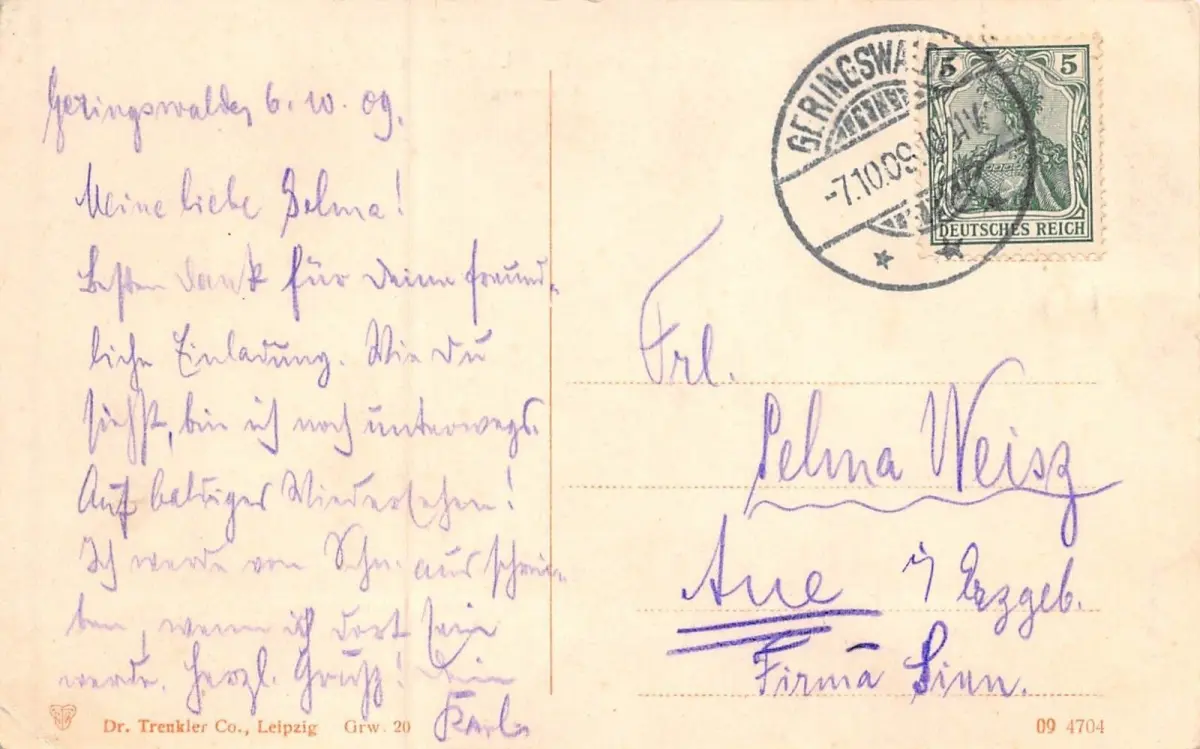 Geringswalde, 6. 10. 09.
Meine liebe Selma!
Besten Dank für Deine freund-
liche Einladung. Wie Du
siehst, bin ich noch unterwegs.
Auf baldiges Wiedersehen!
Ich werde von Schn. aus schrei-
ben, wenn ich dort sein
werde. Herzl. Gruß! Dein
Karl
GERINGSWALDE
-7.10.09.
5 5
DEUTSCHES REICH
Frl.
Selma Weisz
Aue i/ Erzgeb.
Firma Sinn.
Dr. Trenkler Co., Leipzig Grw. 20
09 4704